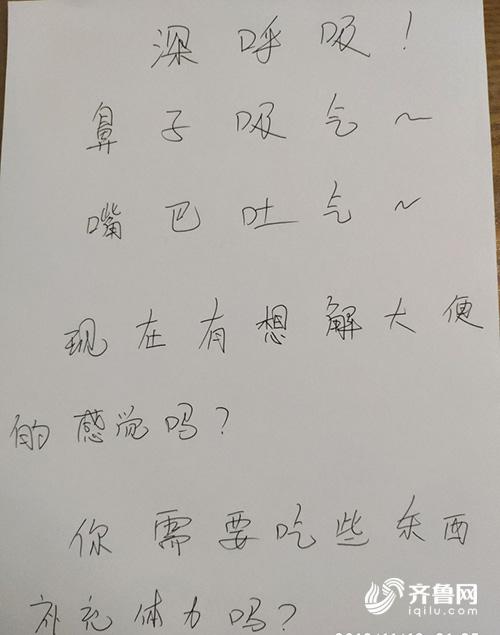 深呼吸！
鼻子吸气~
嘴巴吐气~
现在有想解大便
的感觉吗？
你需要吃些东西
补充体力吗？
齐鲁网
iqilu.com